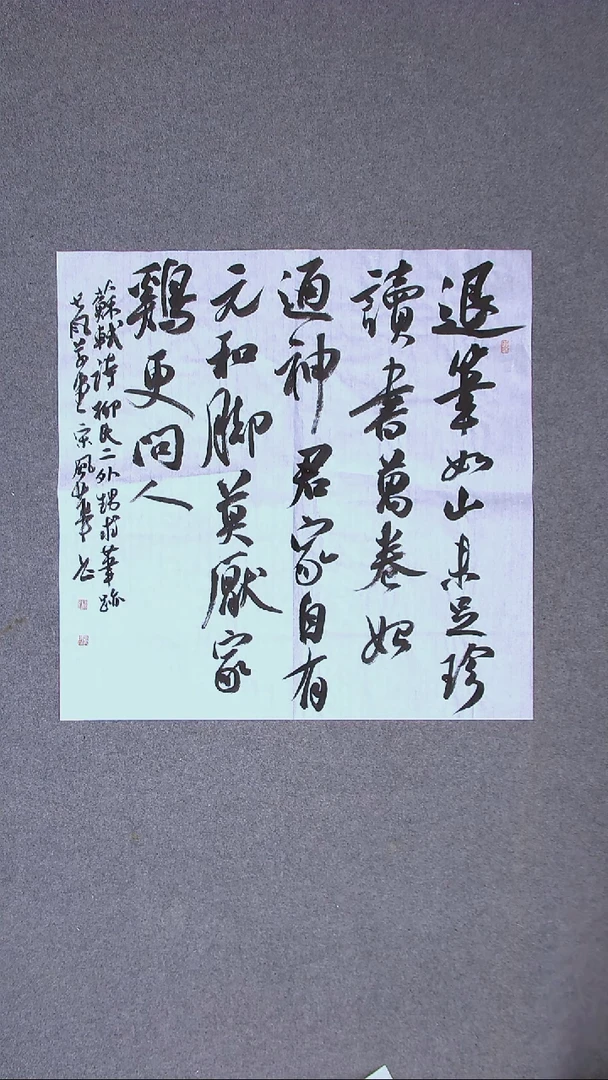 退筆如山未足珍
讀書萬卷始
通神君家自有
元和脚莫厭家
鷄更問人
蘇軾詩柳氏二外甥求筆跡